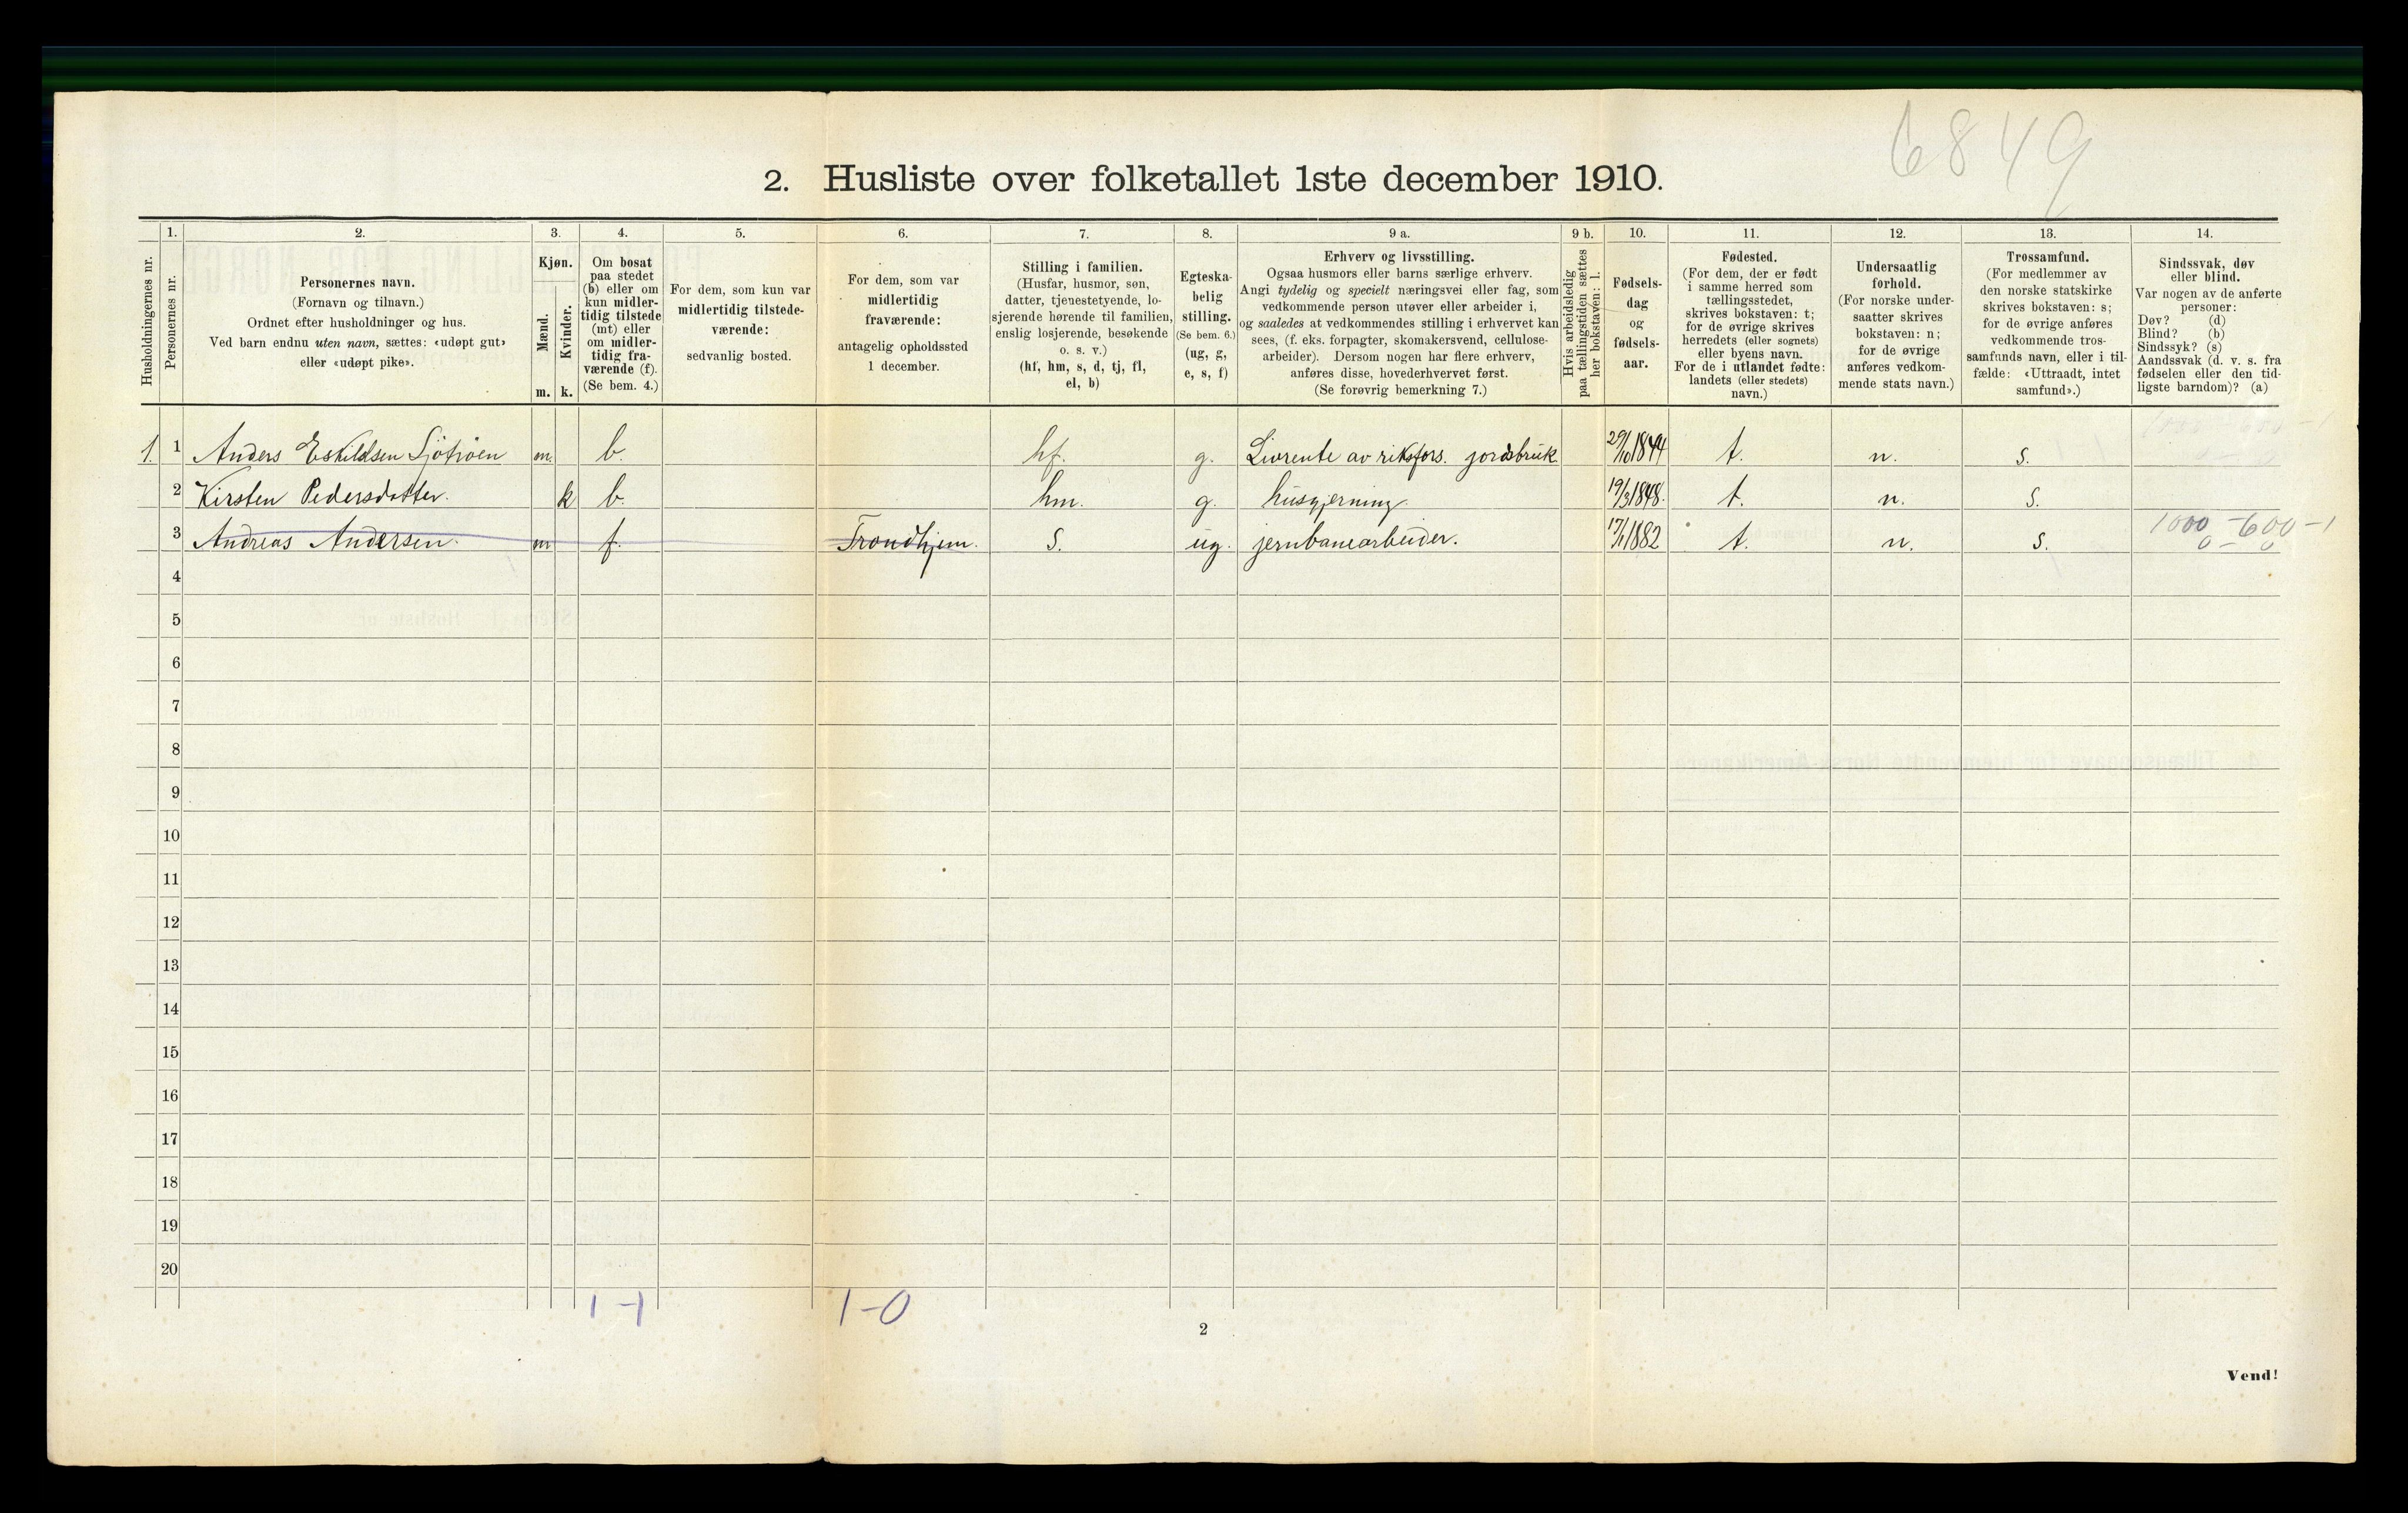 6849
2. Husliste over folketallet 1ste december 1910.
Husholdningernes nr.
1.
Personernes nr.
2.
Personernes navn.
(Fornavn og tilnavn.)
Ordnet efter husholdninger og hus.
Ved barn endnu uten navn, sættes: «udøpt gut»
eller «udøpt pike».
3.
Kjøn.
Mænd.
Kvinder.
m. k.
4.
Om bosat
paa stedet
(b) eller om
kun midler-
tidig tilstede
(mt) eller
om midler-
tidig fra-
værende (f).
(Se bem. 4.)
5.
For dem, som kun var
midlertidig tilstede-
værende:
sedvanlig bosted.
6.
For dem, som var
midlertidig
fraværende:
antagelig opholdssted
1 december.
7.
Stilling i familien.
(Husfar, husmor, søn,
datter, tjenestetyende, lo-
sjerende hørende til familien,
enslig losjerende, besøkende
o. s. v.)
(hf, hm, s, d, tj, fl,
el, b)
8.
Egteska-
belig
stilling.
(Se bem. 6.)
(ug, g,
e, s, f)
9 a.
Erhverv og livsstilling.
Ogsaa husmors eller barns særlige erhverv.
Angi tydelig og specielt næringsvei eller fag, som
vedkommende person utøver eller arbeider i,
og saaledes at vedkommendes stilling i erhvervet kan
sees, (f. eks. forpagter, skomakersvend, cellulose-
arbeider). Dersom nogen har flere erhverv,
anføres disse, hovederhvervet først.
(Se forøvrig bemerkning 7.)
9 b.
Hvis arbeidsledig
paa tællingstiden sættes
her bokstaven: l.
10.
Fødsels-
dag
og
fødsels-
aar.
11.
Fødested.
(For dem, der er født
i samme herred som
tællingsstedet,
skrives bokstaven: t;
for de øvrige skrives
herredets (eller sognets)
eller byens navn.
For de i utlandet fødte:
landets (eller stedets)
navn.)
12.
Undersaatlig
forhold.
(For norske under-
saatter skrives
bokstaven: n;
for de øvrige
anføres vedkom-
mende stats navn.)
13.
Trossamfund.
(For medlemmer av
den norske statskirke
skrives bokstaven: s;
for de øvrige anføres
vedkommende tros-
samfunds navn, eller i til-
fælde: «Uttraadt, intet
samfund».)
14.
Sindssvak, døv
eller blind.
Var nogen av de anførte
personer:
Døv? (d)
Blind? (b)
Sindssyk? (s)
Aandssvak (d. v. s. fra
fødselen eller den tid-
ligste barndom)? (a)
1. 1 Anders Eskildsen Sjötröen m. b. hf. g. Livrente av riksfors. jordbruk 29/10 1844 t. n. s.
2 Kirsten Pedersdatter. k b. hm. g. husgjerning 19/3 1848. t. n. s.
3 Andreas Andersen. m f. Trondhjem. s. ug. jernbanearbeider. 17/1 1882 t. n. s. 1000-600-1
0-0
4
5
6
7
8
9
10
11
12
13
14
15
16
17
18
19
20
1-1 1-0
2
Vend!